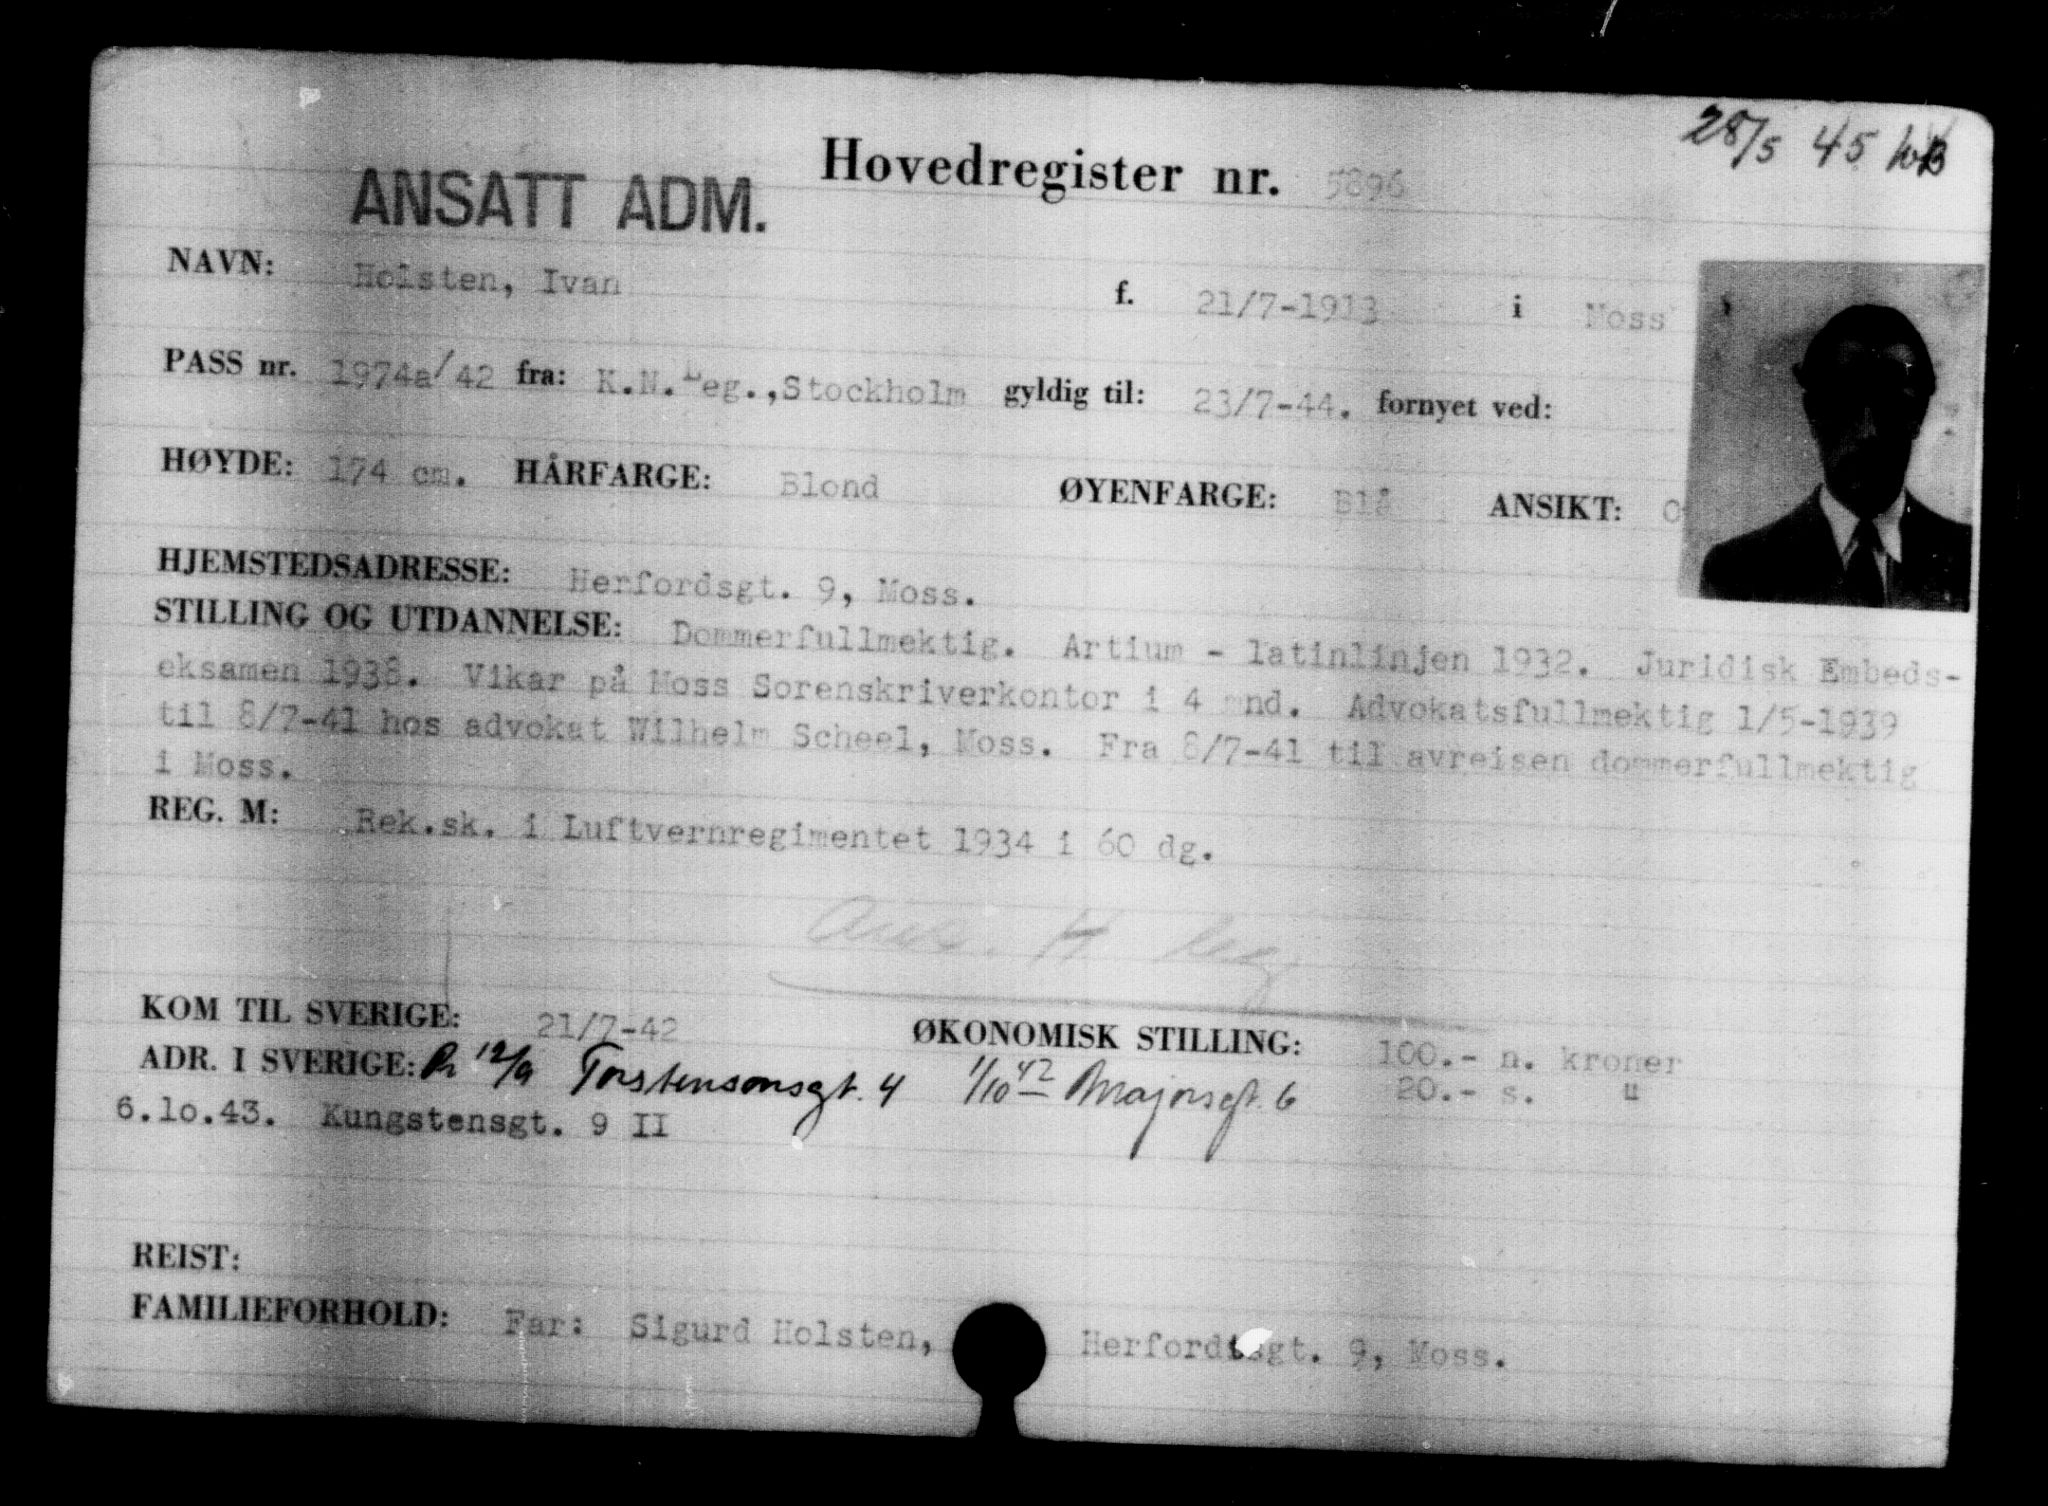 28/5 45 WB
Hovedregister nr. 5896
ANSATT ADM.
NAVN: Holsten, Ivan f. 21/7-1913 i Moss
PASS nr. 1974a/42 fra: K.N.Leg.,Stockholm gyldig til: 23/7-44. fornyet ved:
HØYDE: 174 cm. HÅRFARGE: Blond ØYENFARGE: Blå ANSIKT:
HJEMSTEDSADRESSE: Herfordsgt. 9, Moss.
STILLING OG UTDANNELSE: Dommerfullmektig. Artium - latinlinjen 1932. Juridisk Embeds-
eksamen 1938. Vikar på Moss Sorenskriverkontor i 4 mnd. Advokatsfullmektig 1/5-1939
til 8/7-41 hos advokat Wilhelm Scheel, Moss. Fra 8/7-41 til avreisen dommerfullmektig
i Moss.
REG. M: Rek.sk. i Luftvernregimentet 1934 i 60 dg.
KOM TIL SVERIGE: 21/7-42 ØKONOMISK STILLING: 100.- n. kroner
ADR. I SVERIGE: 12/9 Torstensonsgt. 4 1/10 42 Majorsgt. 6 20.- s. "
6.lo.43. Kungstensgt. 9 II
REIST:
FAMILIEFORHOLD: Far: Sigurd Holsten, Herfordtsgt. 9, Moss.